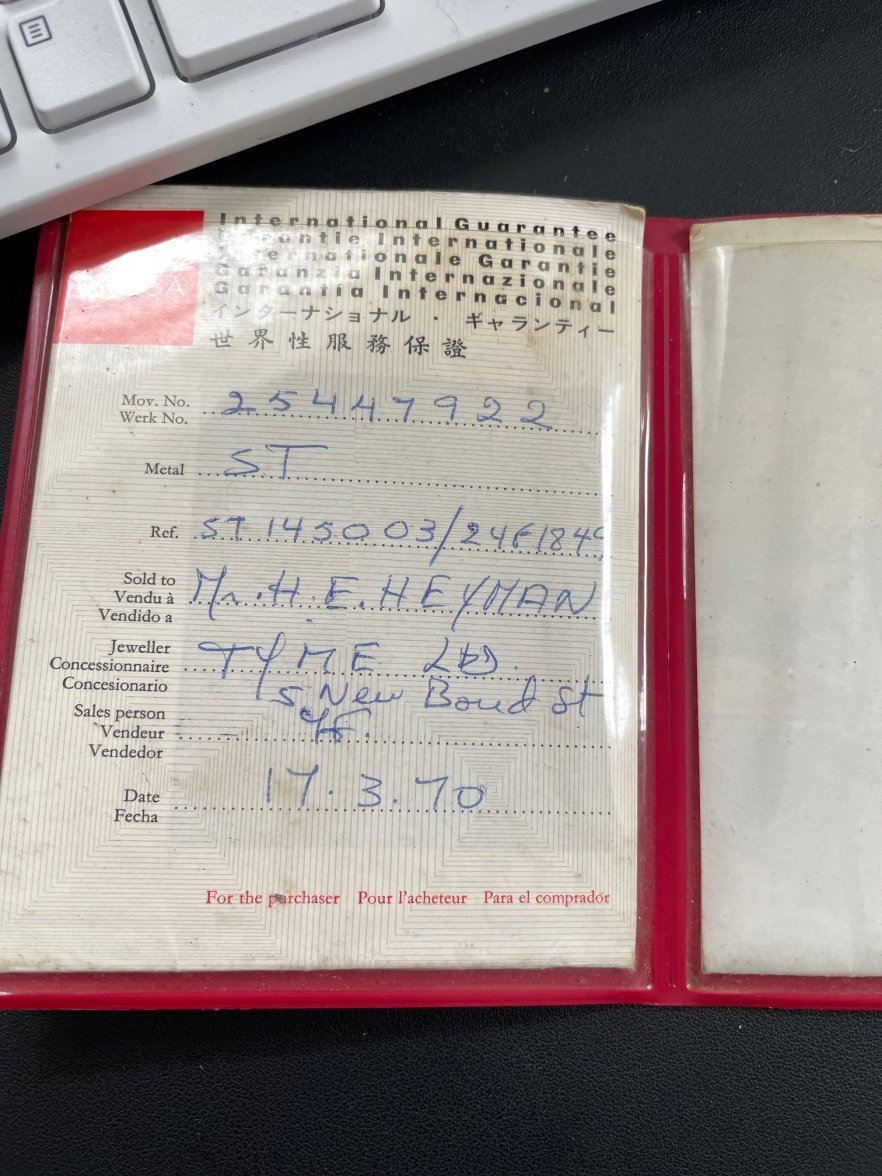 International Guarantee
Garantie Internationale
Internationale Garantie
Garanzia Internazionale
Garantía Internacional
インターナショナル · ギャランティー
世界性服務保證
Mov. No. 25447922
Werk No.
Metal ST
Ref. ST 145003/
Sold to
Vendu à Mr. H. E. HEYMAN
Vendido a
Jeweller
Concessionnaire TYME LTD.
Concesionario 5 New Bond St
Sales person
Vendeur
Vendedor
Date 17.3.70
Fecha
For the purchaser Pour l'acheteur Para el comprador